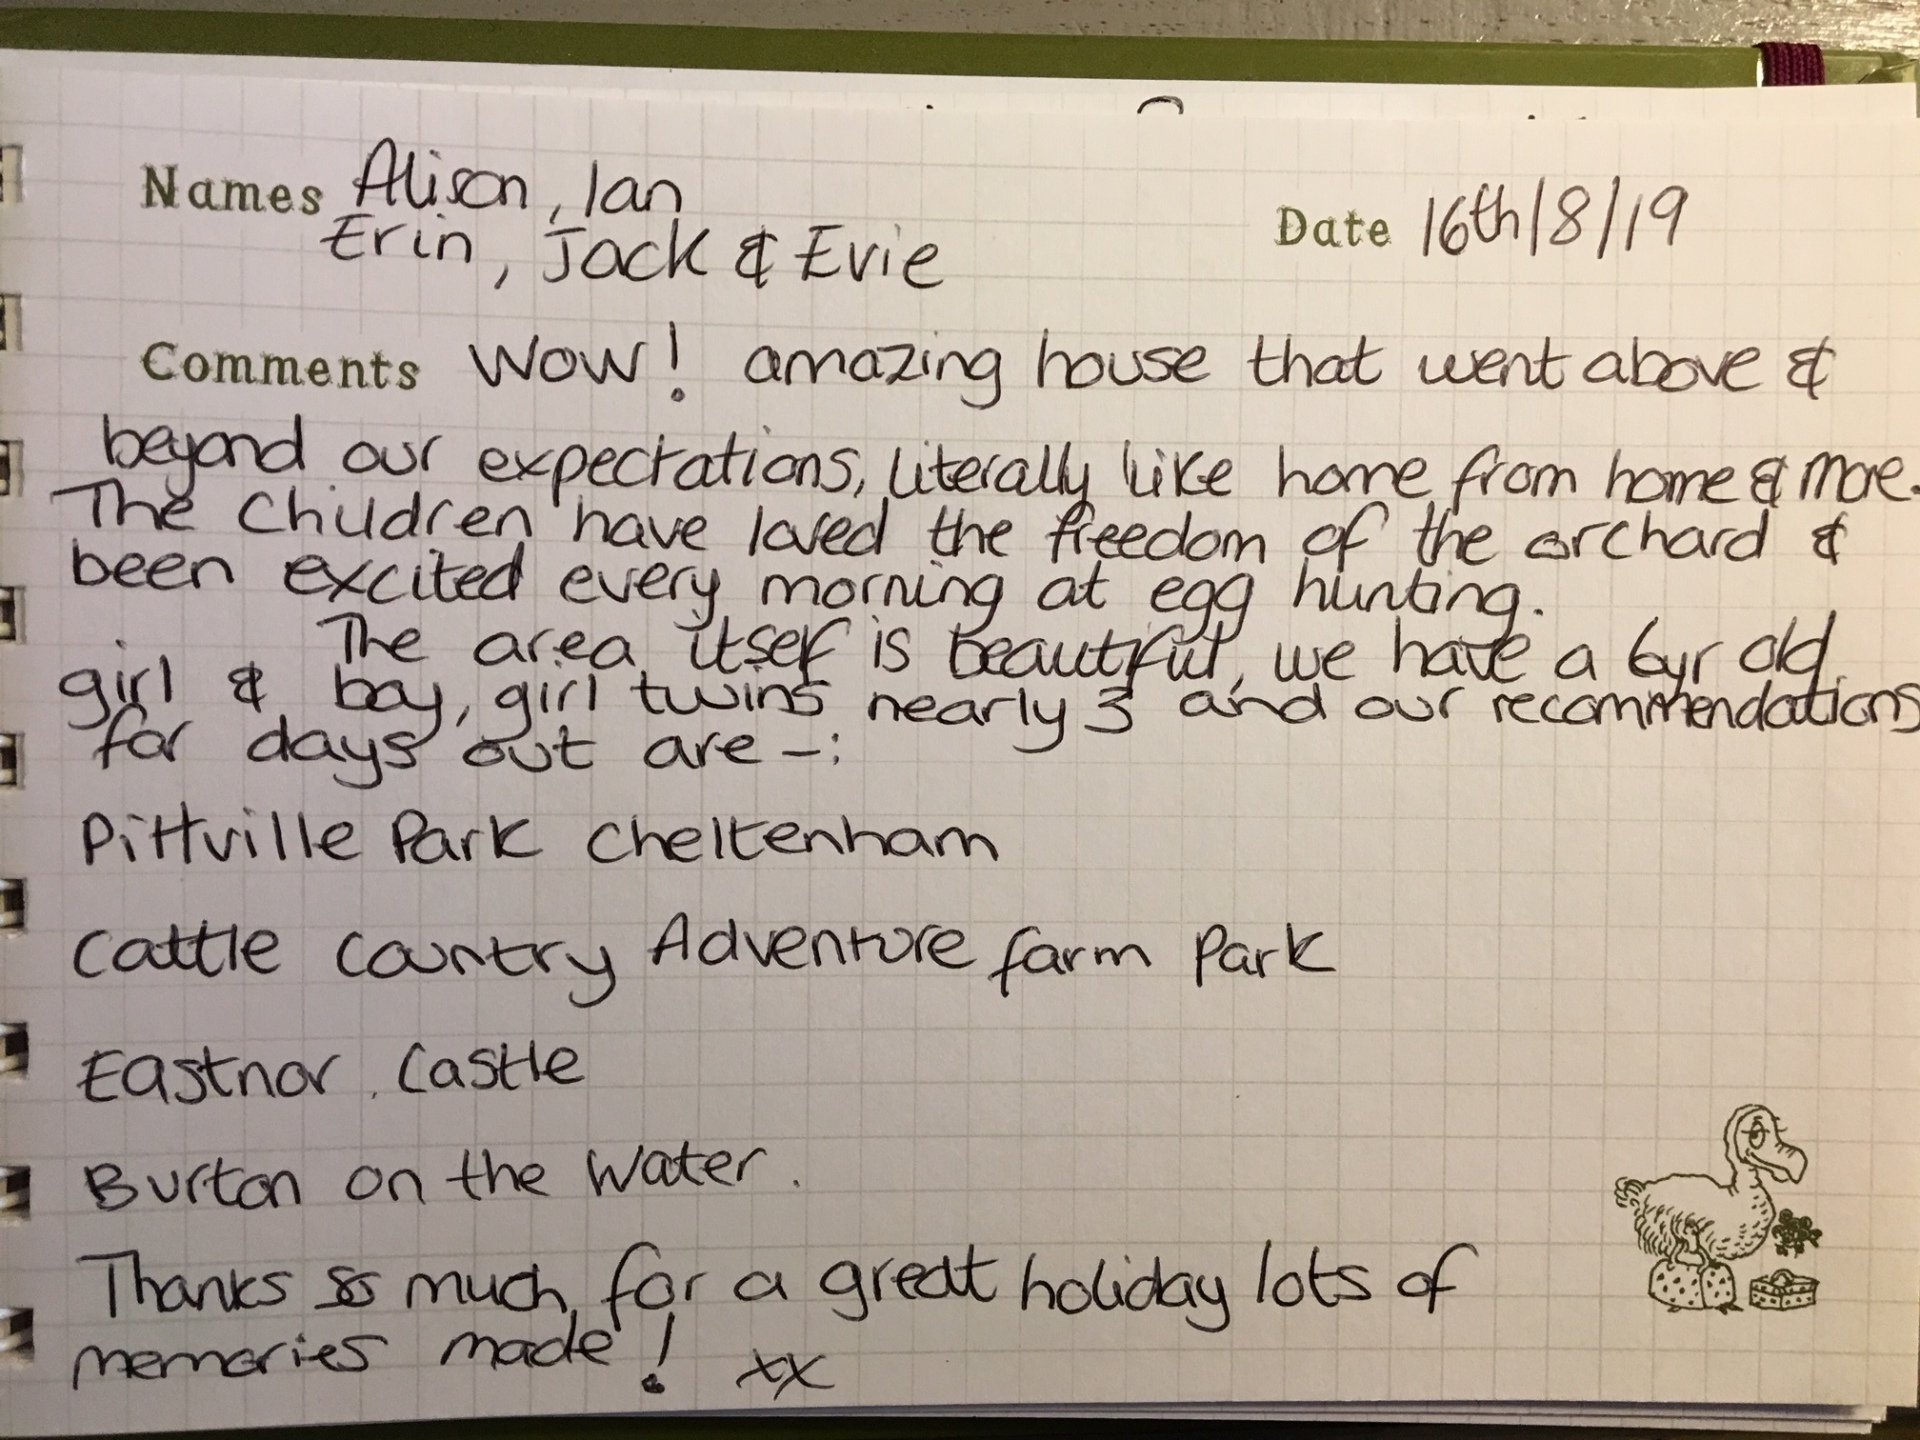 Names Alison, Ian
Erin, Jack & Evie
Date 16th/8/19
Comments WOW! amazing house that went above &
beyond our expectations, literally like home from home & more.
The Children have loved the freedom of the orchard &
been excited every morning at egg hunting.
The area itself is beautiful, we have a 6yr old
girl & boy, girl twins nearly 3 and our recommendations
for days out are -:
Pittville Park Cheltenham
Cattle Country Adventure farm Park
Eastnor Castle
Burton on the Water.
Thanks so much for a great holiday lots of
memories made! xx